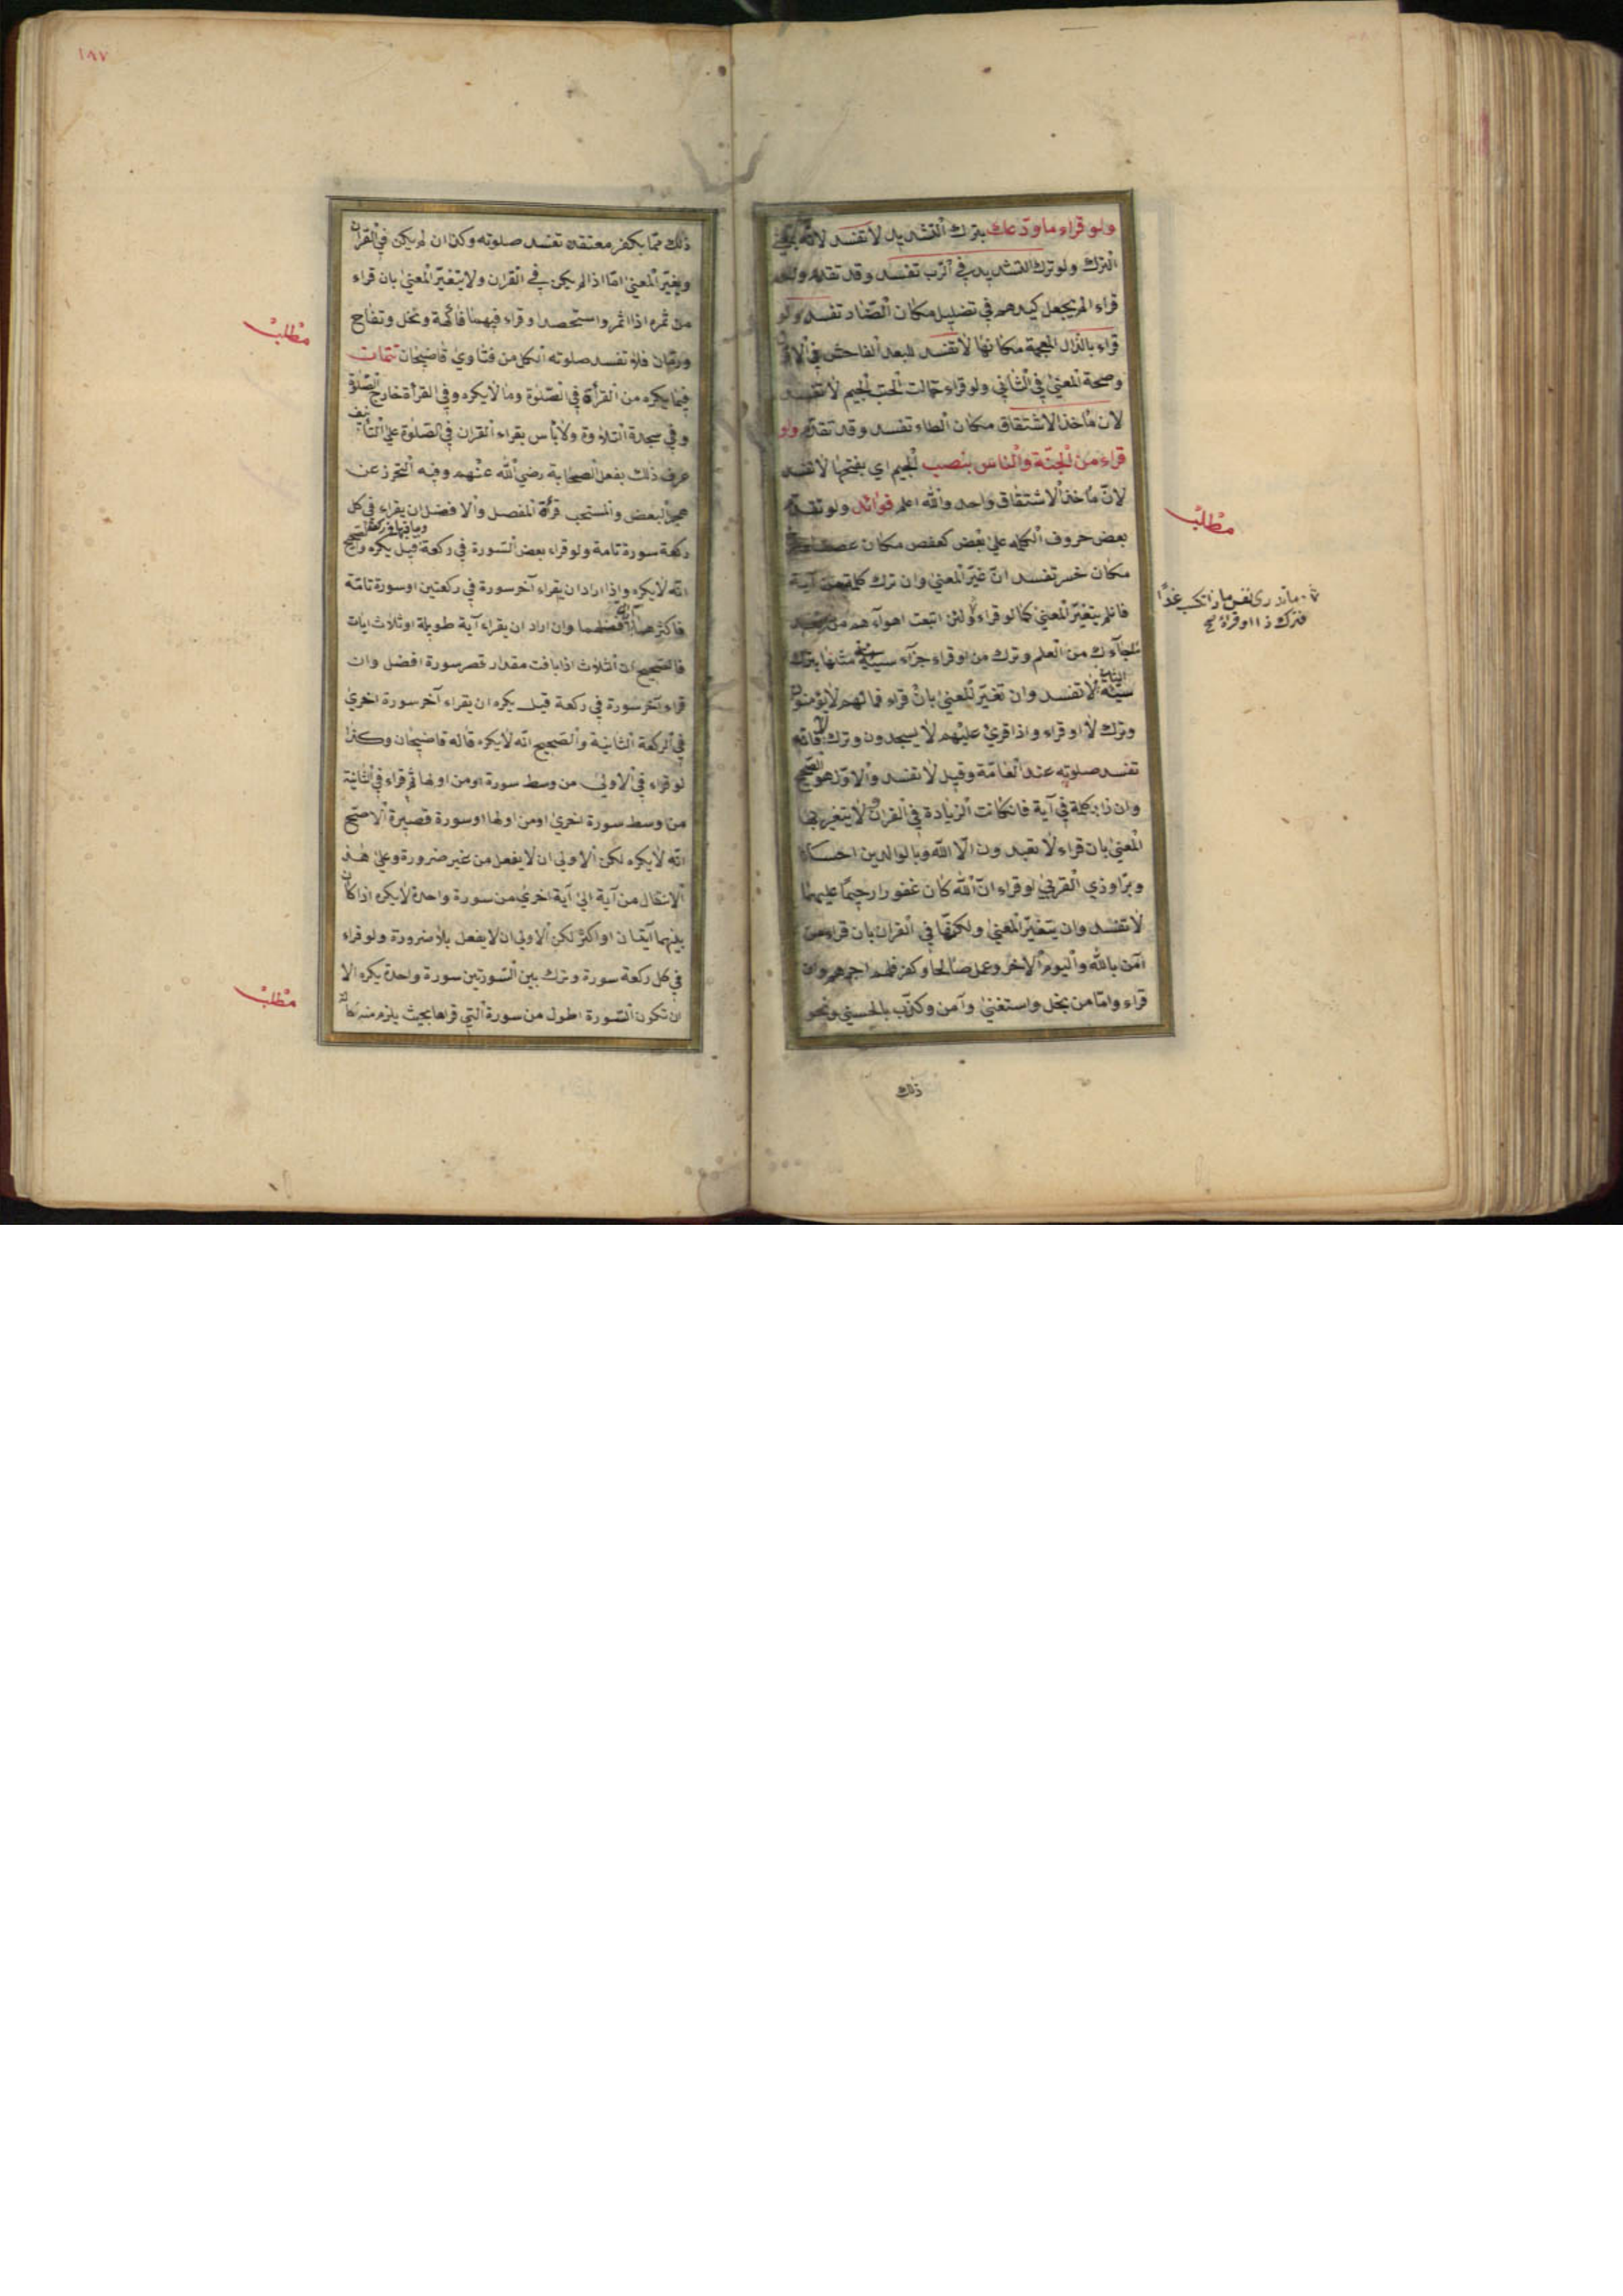 ولو قراء ما ودعك بترك التشديد لا تفسد لانه
الترك ولو ترك التشديد في الرب تفسد وقد تقدم ولو
قراء الم يجعل كيدهم في تضليل مكان الضاد تفسد ولو
قراء بالذال المعجمة مكانها لا تفسد للبعد الفاحش في
وصحة المعنى في الثاني ولو قراء حمالت الحتب الجيم لا تفسد
لان مأخذ الاشتقاق مكان الطاء تفسد وقد تقدم ولو
قراء من الجنة والناس بنصب الجيم اي بفتحها لا تفسد
لان مأخذ الاشتقاق واحد والله اعلم فوائد ولو تقدم
بعض حروف الكلمه على بعض كعفص مكان عصف
مكان خسر تفسد ان غير المعنى وان ترك كلمة من آية
فان لم يتغير المعنى كما لو قراء ولئن اتبعت اهوآءهم من بعد
ما جآءك من العلم وترك من او قراء جزآء سيئة سيئة مثلها بترك
سيئة الثانية لا تفسد وان تغير المعنى بان قراء فمالهم لا يؤمنون
وترك لا او قراء واذا قرئ عليهم لا يسجدون وترك لا فانه
تفسد صلوته عند العامة وقيل لا تفسد والاول هو الصحيح
وان زاد كلمة في آية فان كانت الزيادة في القران لا يتغير بها
المعنى بان قراء لا تعبدون الا الله وبالوالدين احسانا
وبرا وذي القربى او قراء ان الله كان غفورا رحيما عليما
لا تفسد وان يتغير المعنى ولكنها في القران بان قراء من
آمن بالله واليوم الاخر وعمل صالحا وكفر فلهم اجرهم وان
قراء واما من بخل واستغنى وآمن وكذب بالحسنى ونحو
ذلك
مطلب
ما تدرى نفس ماذا تكسب غدا
فترك ذا او قراء صح
١٨٧
ذلك مما يكفر معتقده تفسد صلوته وكذا ان لم يكن في القران
ويغير المعنى اما اذا لم يكن في القران ولا يتغير المعنى بان قراء
من ثمره اذا اثمر واستحصد او قراء فيهما فاكهة ونخل وتفاح
ورمان فلا تفسد صلوته الكل من فتاوى قاضيخان تتمات
فيما يكره من القرأة في الصلوة وما لا يكره وفي القرأة خارج الصلوة
وفي سجدة التلاوة ولا بأس بقراء القران في الصلوة على التأليف
عرف ذلك بفعل الصحابة رضي الله عنهم وفيه التحرز عن
هجر البعض والمستحب قرأة المفصل والافضل ان يقراء في كل
ركعة سورة تامة ولو قراء بعض السورة في ركعة وباقيها في ركعة قيل يكره والصحيح
انه لا يكره واذا اراد ان يقراء آخر سورة في ركعتين او سورة تامة
فاكثرهما آية افضلهما وان اراد ان يقراء آية طويلة او ثلاث ايات
فالصحيح ان الثلاث اذا بلغت مقدار قصر سورة افضل وان
قراء آخر سورة في ركعة قيل يكره ان يقراء آخر سورة اخرى
في الركعة الثانية والصحيح انه لا يكره قاله قاضيخان وكذا
لو قراء في الاولى من وسط سورة او من اولها ثم قراء في الثانية
من وسط سورة اخرى او من اولها او سورة قصيرة الاصح
انه لا يكره لكن الاولى ان لا يفعل من غير ضرورة وعلى هذا
الانتقال من آية الى آية اخرى من سورة واحدة لا يكره اذا كان
بينهما آيتان او اكثر لكن الاولى ان لا يفعل بلا ضرورة ولو قراء
في كل ركعة سورة وترك بين السورتين سورة واحدة يكره الا
ان تكون السورة اطول من سورة التي قراها بحيث يلزم منه اطالة
مطلب
مطلب